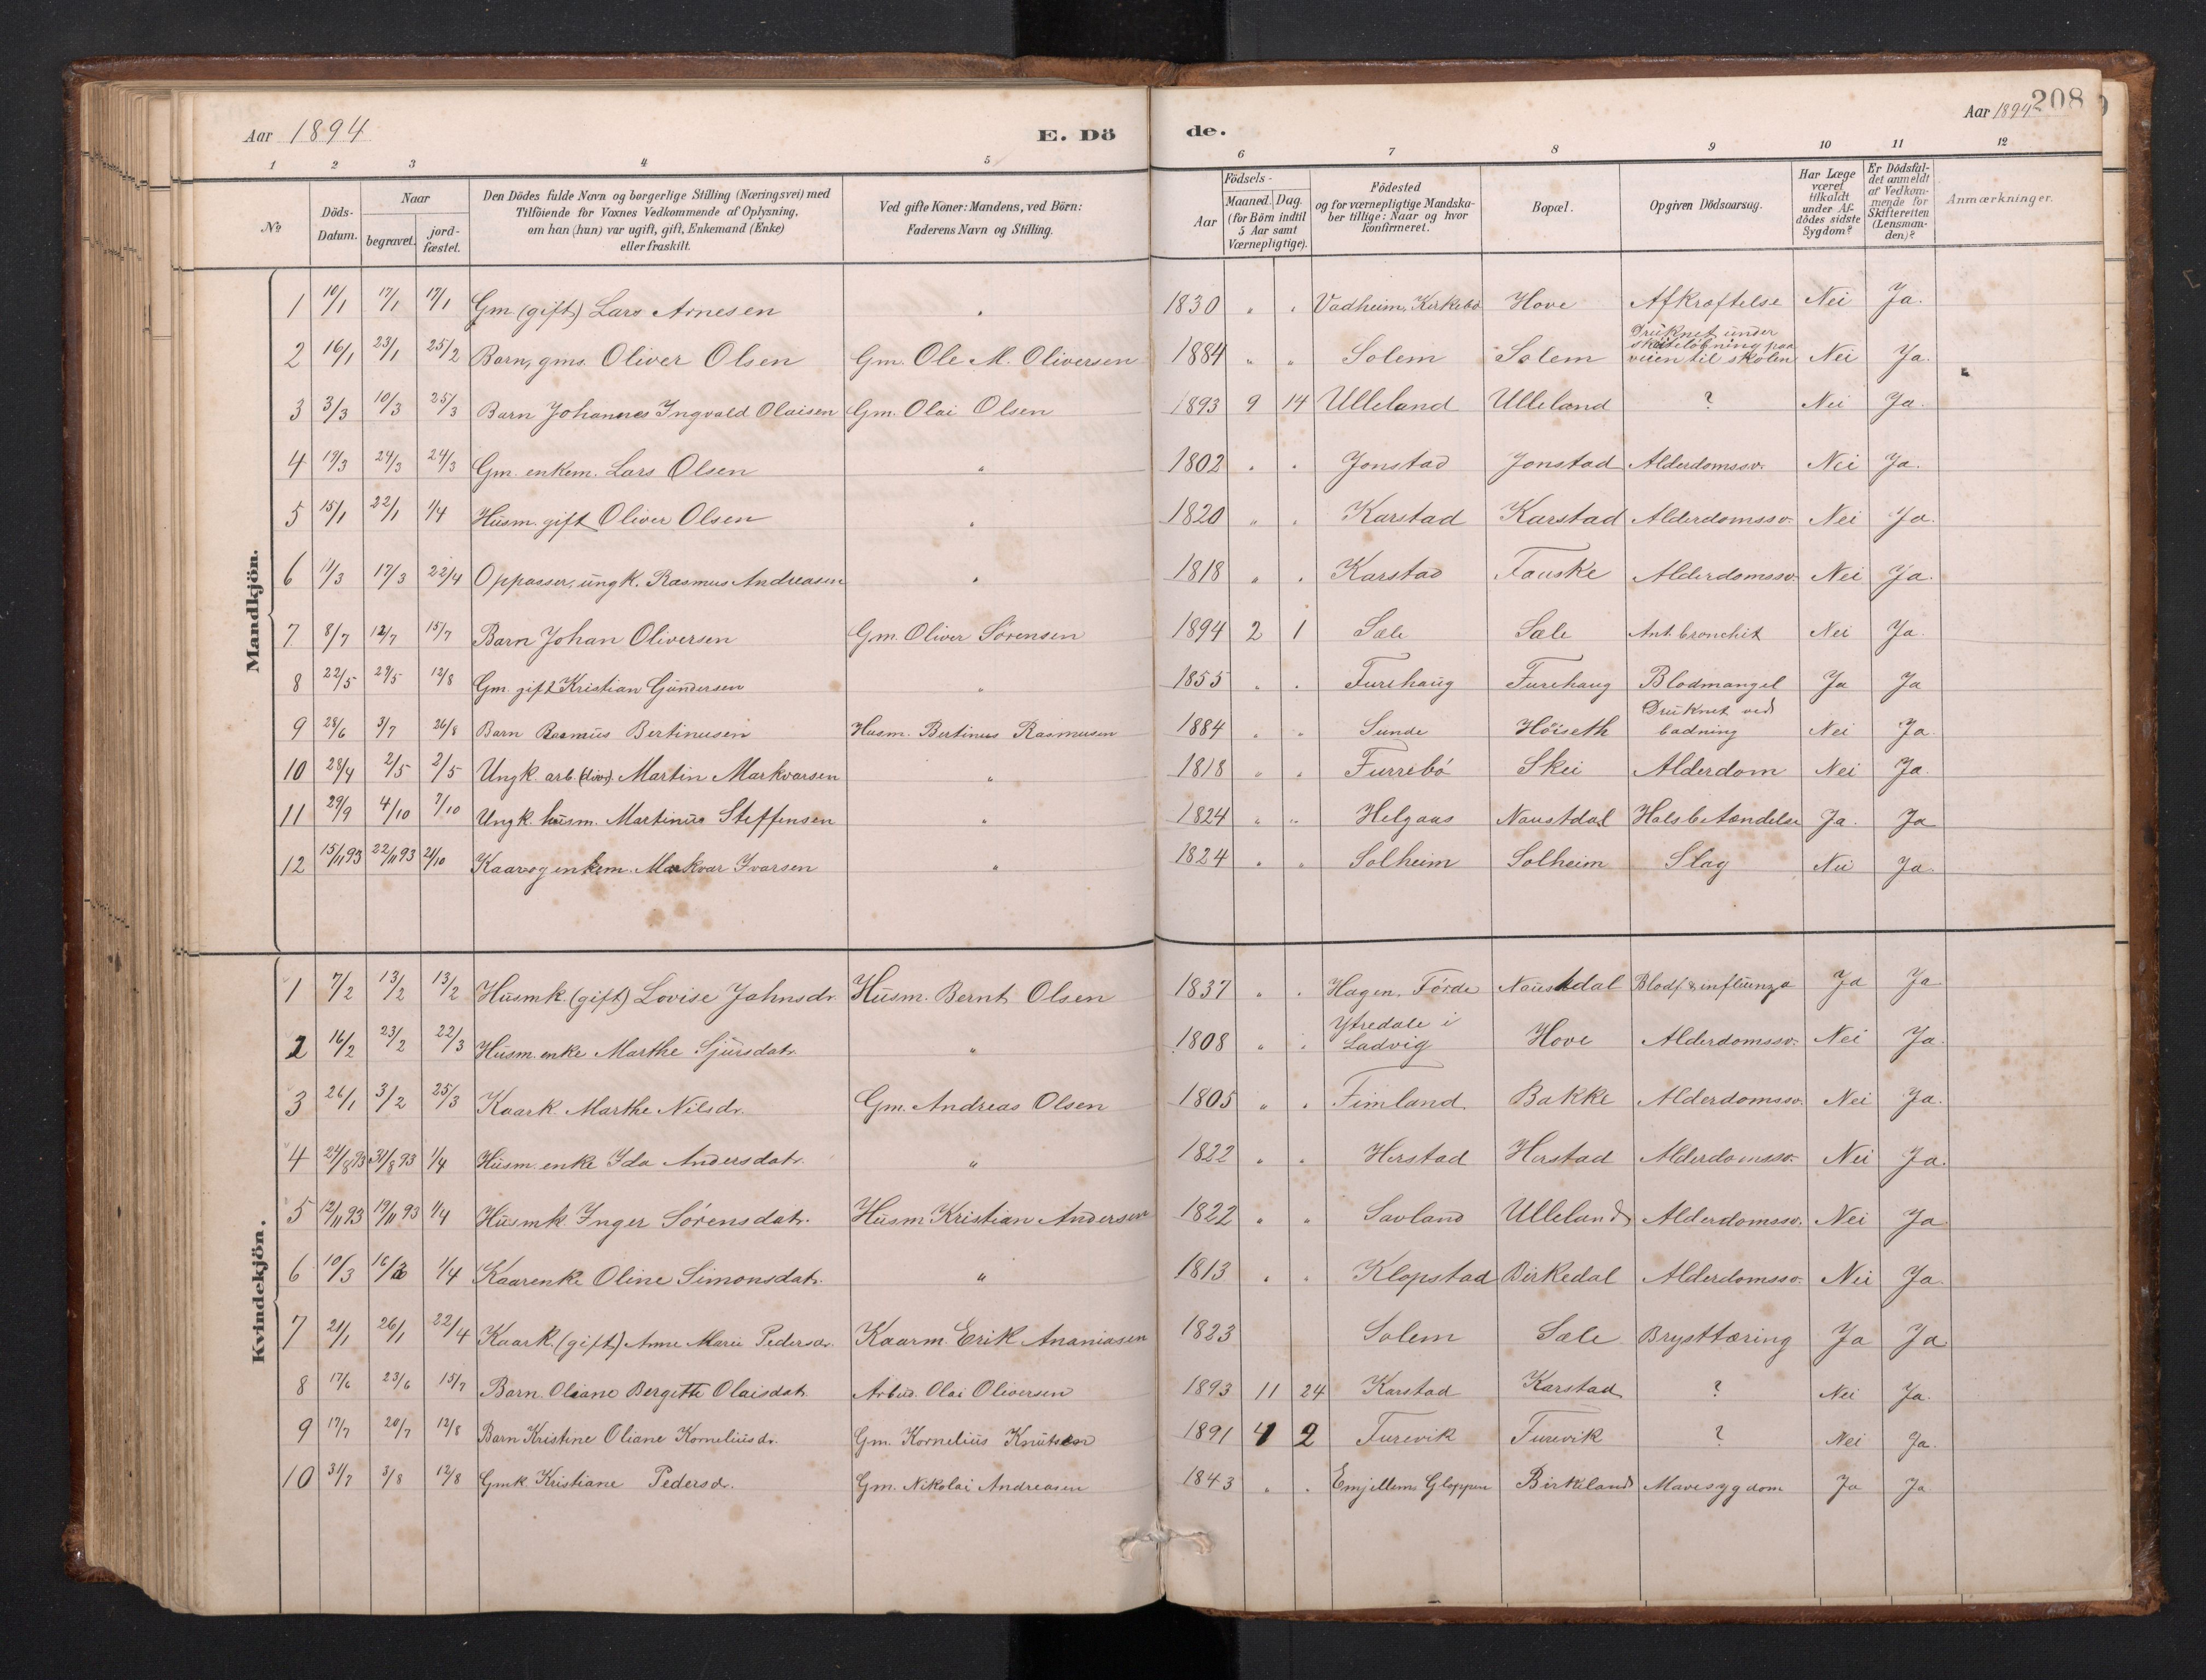 Aar 1894
E. Dö
de.
Aar 1894
208
1 2 3 4 5 6 7 8 9 10 11 12
No
Döds-Datum.
Naar
begravet.
jordfæstet.
Den Dödes fulde Navn og borgerlige Stilling (Næringsvei) med
Tilföiende for Voxnes Vedkommende af Oplysning,
om han (hun) var ugift, gift, Enkemand (Enke)
eller fraskilt.
Ved gifte Koner: Mandens, ved Börn:
Faderens Navn og Stilling.
Födsels-
Aar
Maaned. Dag.
(for Börn indtil
5 Aar samt
Værnepligtige).
Födested
og for værnepligtige Mandska-
ber tillige: Naar og hvor
konfirmeret.
Bopæl.
Opgiven Dödsaarsag.
Har Læge
været
tilkaldt
under Af-
dödes sidste
Sygdom?
Er Dödsfal-
det anmeldt
af Vedkom-
mende for
Skifteretten
(Lensman-
den)?
Anmærkninger.
Mandkjön.
1 10/1 17/1 17/1 Gm. (gift) Lars Arnesen " 1830 " " Vadheim, Kirkebø Hove Afkræftelse Nei Ja.
2 16/1 23/1 25/2 Barn, gms. Oliver Olsen Gm. Ole M. Oliversen 1884 " " Solem Solem Druknet under skøiteløbning paa veien til skolen Nei Ja.
3 3/3 10/3 25/3 Barn Johannes Ingvald Olaisen Gm. Olai Olsen 1893 9 14 Ulleland Ulleland ? Nei Ja.
4 19/3 24/3 24/3 Gm. enkem. Lars Olsen " 1802 " " Jonstad Jonstad Alderdomssv. Nei Ja.
5 15/1 22/1 1/4 Husm. gift Oliver Olsen " 1820 " " Karstad Karstad Alderdomssv. Nei Ja.
6 11/3 17/3 22/4 Oppasser, ungk. Rasmus Andreasen " 1818 " " Karstad Fauske Alderdomssv. Nei Ja.
7 8/7 12/7 15/7 Barn Johan Oliversen Gm. Oliver Sörensen 1894 2 1 Sæle Sæle Ant. bronchit Nei Ja.
8 22/5 29/5 12/8 Gm. gift Kristian Gundersen " 1855 " " Furehaug Furehaug Blodmangel Ja Ja
9 28/6 3/7 26/8 Barn Rasmus Bertinusen Husm. Bertinus Rasmusen 1884 " " Sunde Höiseth Druknet ved badning Nei Ja.
10 28/4 2/5 2/5 Ungk. arb. (div) Martin Markvarsen " 1818 " " Furrebö Skei Alderdom Nei Ja.
11 29/9 4/10 7/10 Ungk. husm. Martinus Steffensen " 1824 " " Helgaas Naustdal Halsbetændelse Ja. Ja
12 15/11 93 22/11 93 21/10 enkem. Markvar Ivarsen " 1824 " " Solheim Solheim Slag Nei Ja.
Kvindekjön.
1 7/2 13/2 13/2 Husmk. (gift) Lovise Jahnsdr. Husm. Bernt Olsen 1837 " " Hagen, Förde Naustdal Blodf & influenza Ja Ja.
2 16/2 23/2 22/3 Husm. enke Marthe Sjursdatr. " 1808 " " Ytredale i Ladvig Hove Alderdomssv. Nei Ja.
3 26/1 3/2 25/3 Kaark. Marthe Nilsdr. Gm. Andreas Olsen 1805 " " Fimland Bakke Alderdomssv. Nei Ja.
4 24/8 93 31/8 93 1/4 Husm. enke Ida Andersdatr. " 1822 " " Herstad Herstad Alderdomssv. Nei Ja.
5 12/11 93 19/11 93 1/4 Husmk. Inger Sörensdatr. Husm. Kristian Andersen 1822 " " Savland Ulleland Alderdomssv. Nei Ja
6 10/3 16/3 1/4 Kaarenke Oline Simonsdatr. " 1813 " " Klopstad Birkedal Alderdomssv. Nei Ja.
7 21/1 26/1 22/4 Kaark. (gift) Anne Marie Pedersdr. Kaarm. Erik Ananiasen 1823 Solem Sæle Brysttæring Ja Ja
8 17/6 23/6 15/7 Barn. Oliane Bergitte Olaisdatr. Arbeid. Olai Oliversen 1893 11 24 Karstad Karstad ? Nei Ja.
9 17/7 20/7 12/8 Barn Kristine Oliane Korneliusdr. Gm. Kornelius Knutsen 1891 4 2 Furevik Furevik ? Nei Ja.
10 31/7 3/8 12/8 Gmk. Kristiane Pedersdr. Gm. Nikolai Andreasen 1843 " " Emjellem, Gloppen Birkeland Mavesygdom Ja Ja